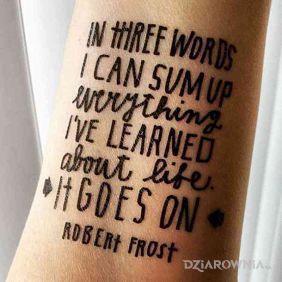 IN THREE WORDS
I CAN SUM UP
everything
I'VE LEARNED
about life.
IT GOES ON
ROBERT FROST
DZIAROWNIA.PL